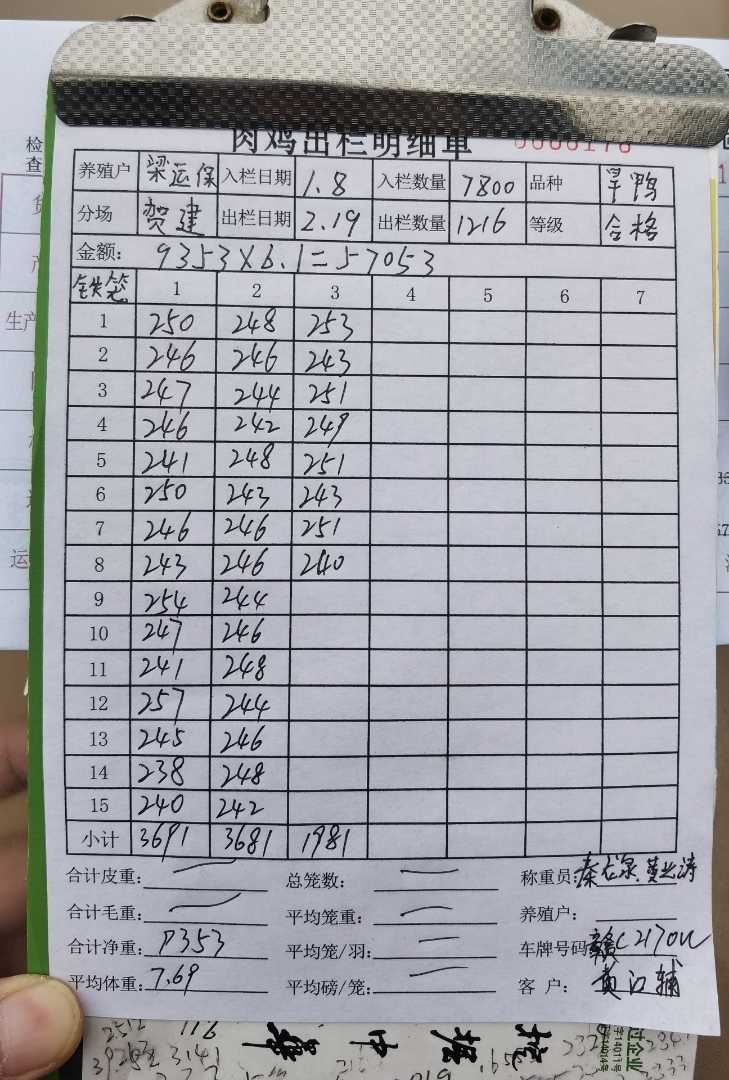 肉鸡出栏明细单 0000176
养殖户 梁运保 入栏日期 1.8 入栏数量 7800 品种 旱鸭
分场 贺建 出栏日期 2.19 出栏数量 1216 等级 合格
金额: 9353×6.1=57053
铁笼 1 2 3 4 5 6 7
1 250 248 253
2 246 246 243
3 247 244 251
4 246 242 249
5 241 248 251
6 250 243 243
7 246 246 251
8 243 246 240
9 254 244
10 247 246
11 241 248
12 257 244
13 245 246
14 238 248
15 240 242
小计 3691 3681 1981
合计皮重: 总笼数: 称重员:
合计毛重: 平均笼重: 养殖户:
合计净重: 9353 平均笼/羽: 车牌号码 赣C2170U
平均体重: 7.69 平均磅/笼: 客 户: 黄江辅
检
查
生产
运
过企业